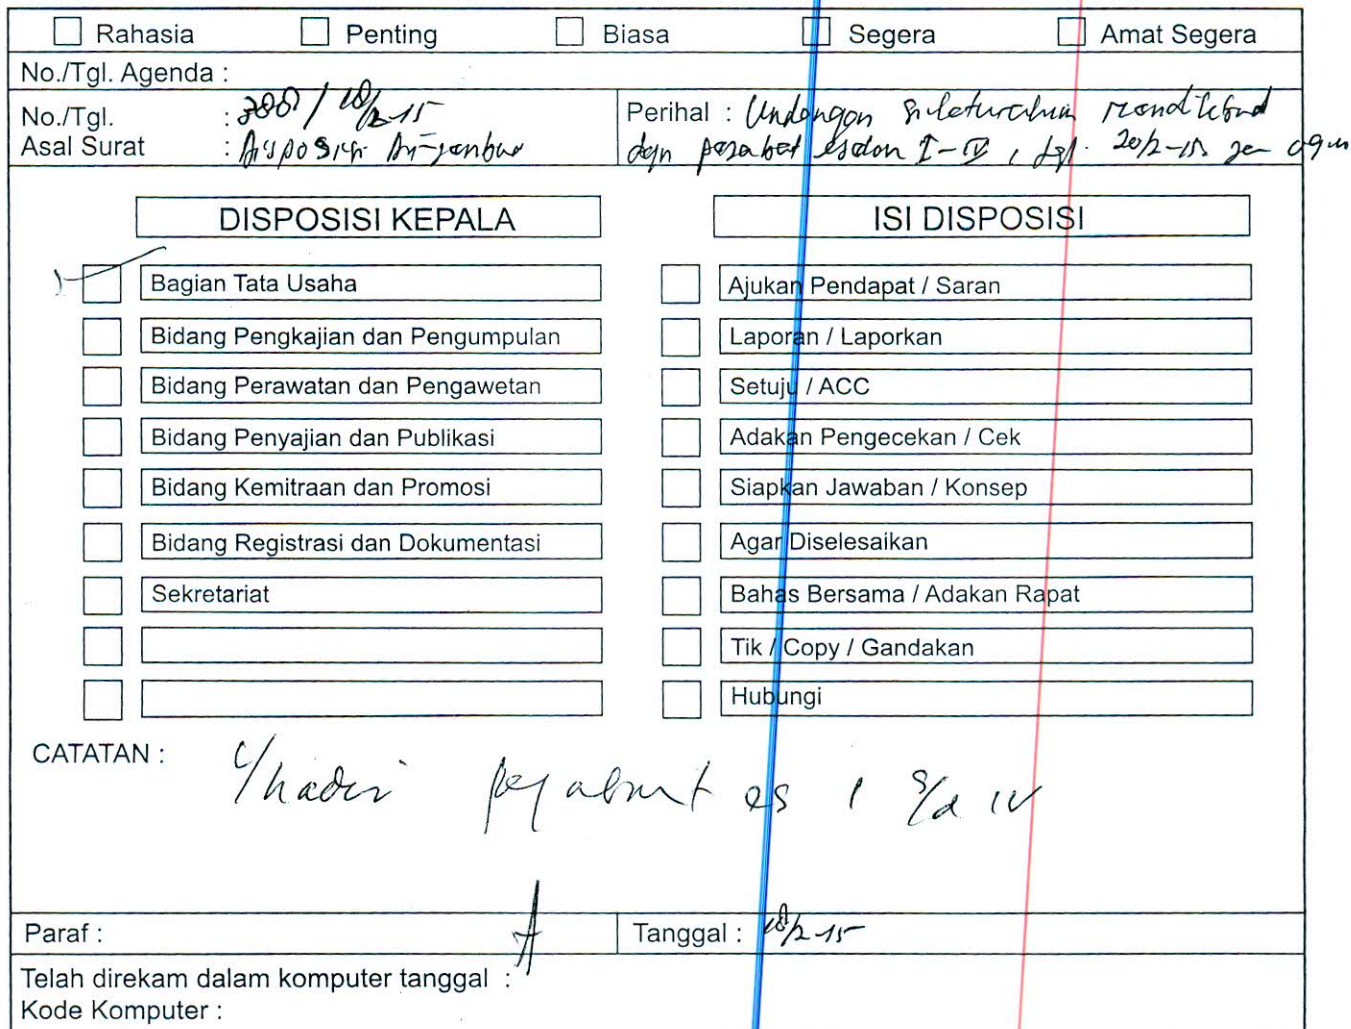 Rahasia Penting Biasa Segera Amat Segera
No./Tgl. Agenda :
No./Tgl. : / 18/2-15
Asal Surat : Disposisi
Perihal : Undangan silaturahim
dgn pejabat eselon I-IV, tgl. 20/2-15
DISPOSISI KEPALA
Bagian Tata Usaha
Bidang Pengkajian dan Pengumpulan
Bidang Perawatan dan Pengawetan
Bidang Penyajian dan Publikasi
Bidang Kemitraan dan Promosi
Bidang Registrasi dan Dokumentasi
Sekretariat
ISI DISPOSISI
Ajukan Pendapat / Saran
Laporan / Laporkan
Setuju / ACC
Adakan Pengecekan / Cek
Siapkan Jawaban / Konsep
Agar Diselesaikan
Bahas Bersama / Adakan Rapat
Tik / Copy / Gandakan
Hubungi
CATATAN :
hadir pejabat es I s/d IV
Paraf :
Tanggal : 18/2-15
Telah direkam dalam komputer tanggal :
Kode Komputer :